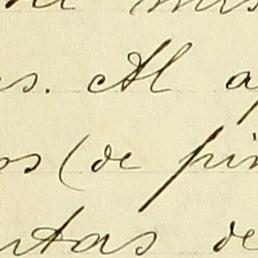 s. Al a
os (de pin
ntas de